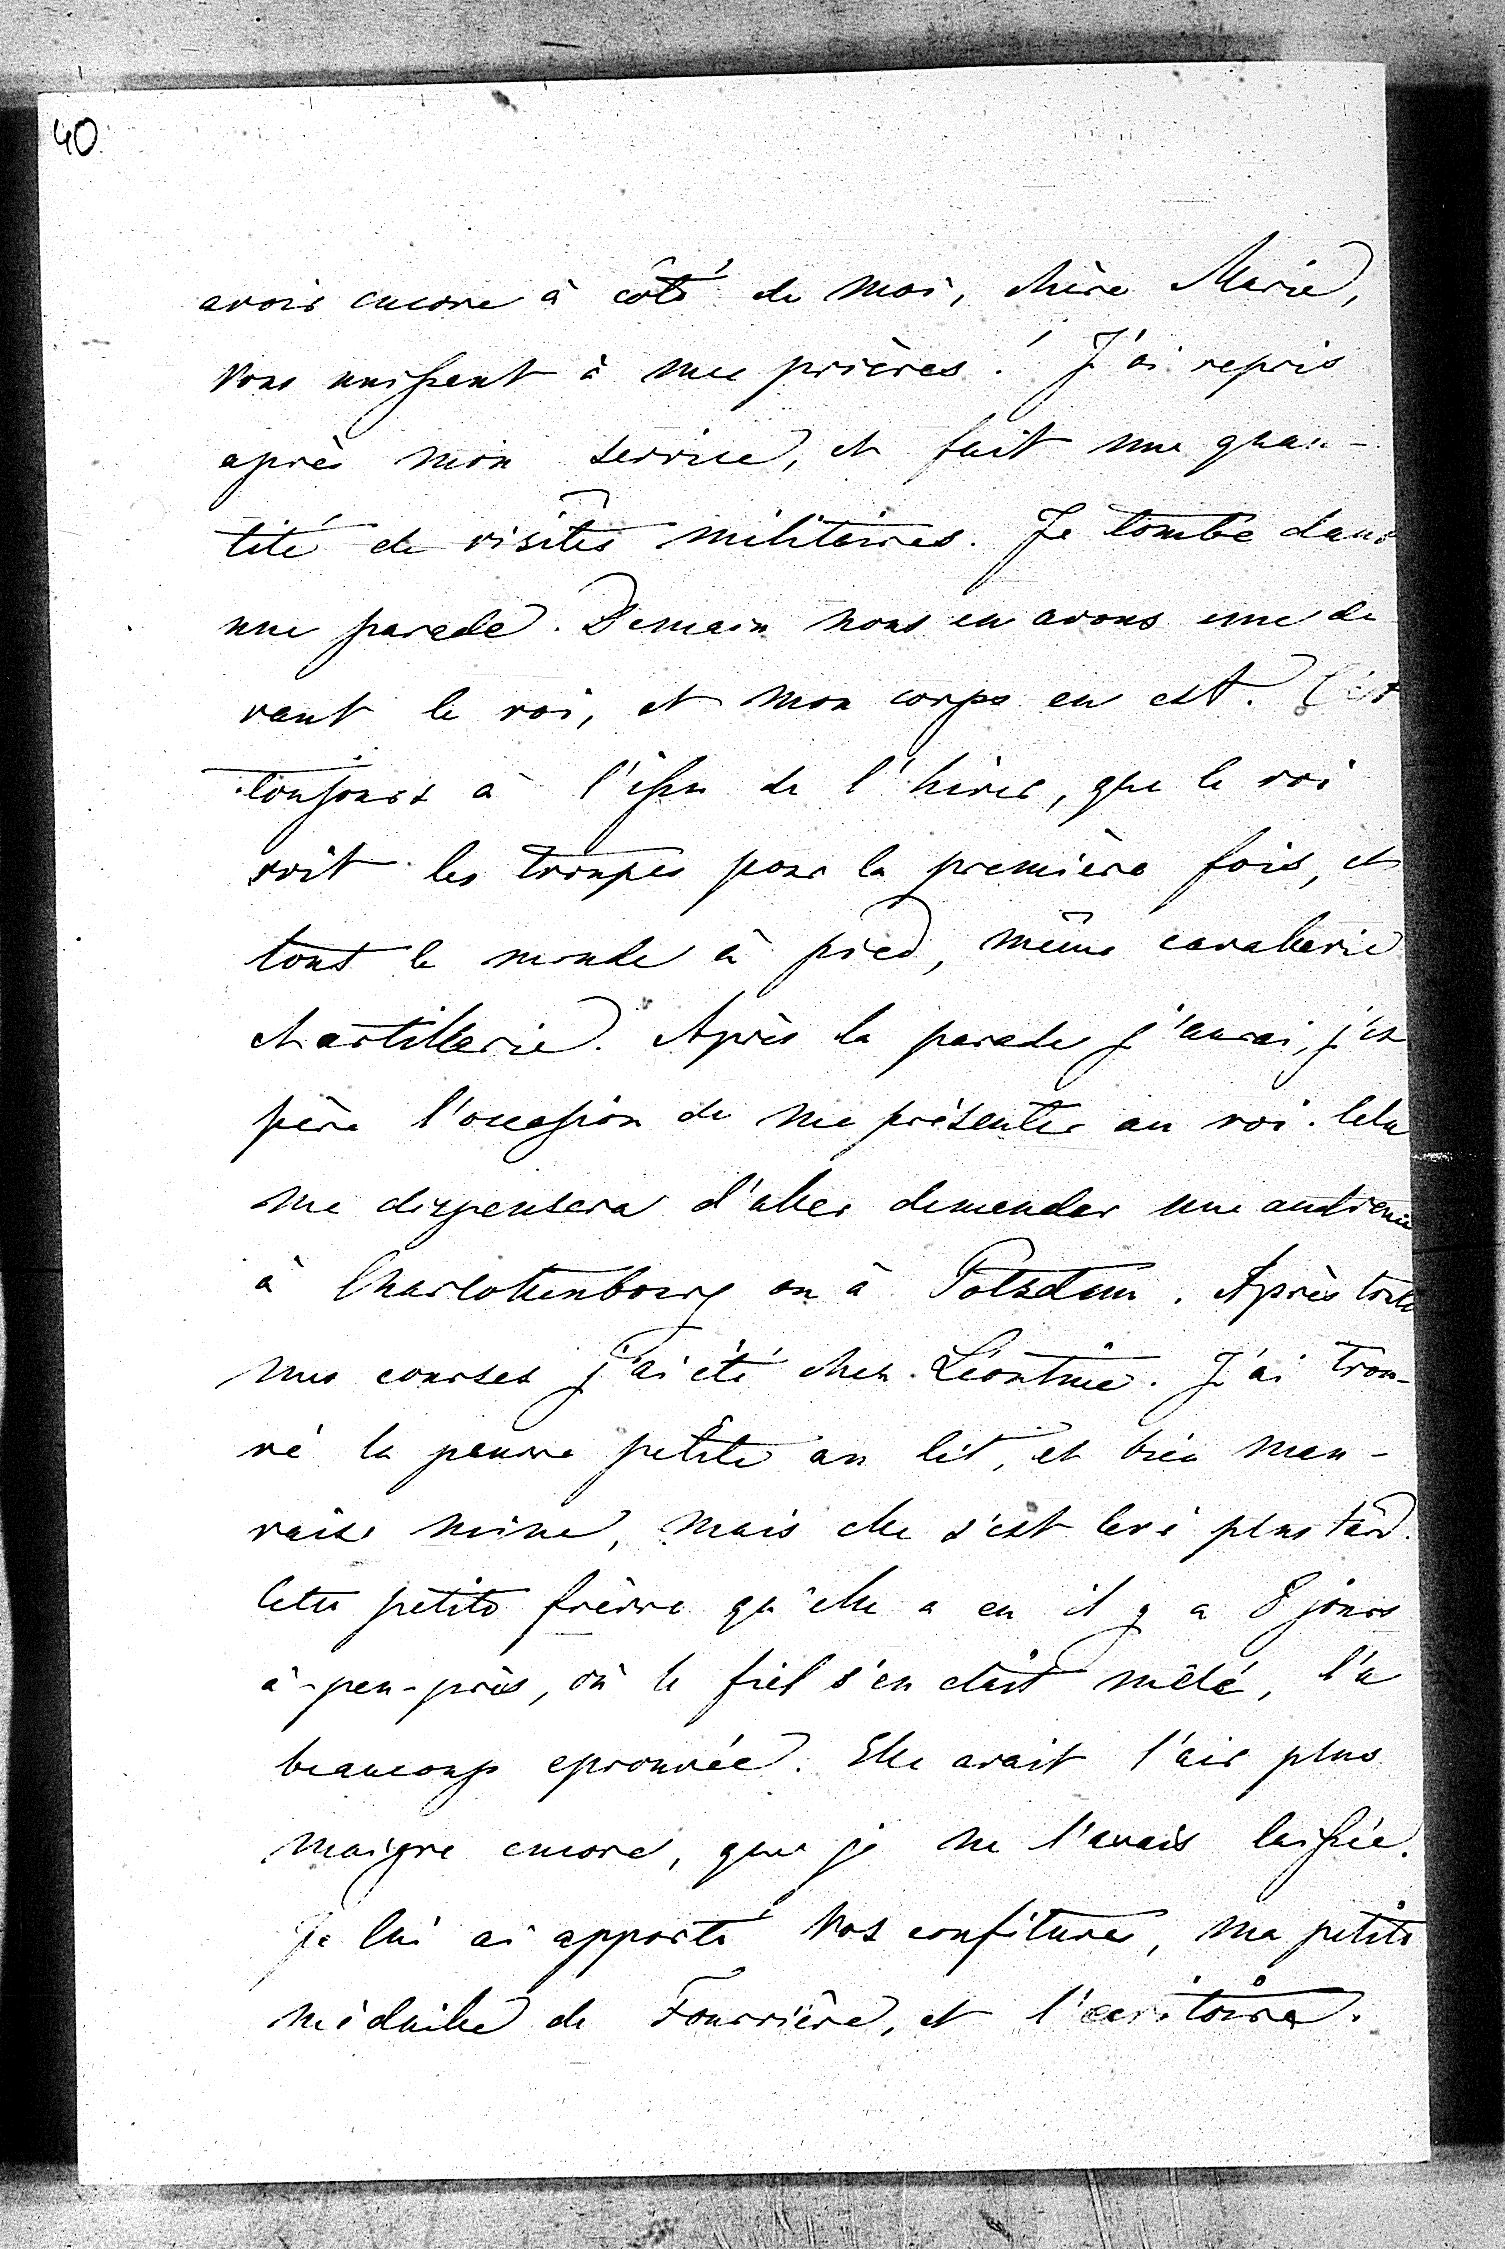 40
avoir encore à côté de moi, chère Marie,
Vous unissent à mes prières! J'ai repris
après mon service, et fait une quan-
tité de visites militaires. Je tombe dans
une parade. Demain nous en avons une de
vant le roi, et mon corps en est. C'est
toujours à l'issu de l'hiver, que le roi
voit les troupes pour la première fois, et
tout le monde à pied, même cavallerie
et artillerie. Après la parade j'aurai, j'es
père l'occasion de me présenter au roi. Cela
me dispensera d'aller demander une audience
à Charlottenbourg ou à Potsdam. Après toutes
mes courses j'ai été chez Léontine. J'ai trou-
vé la pauvre petite au lit, et bien mau-
vaise mine, mais elle s'est levé plus tard.
Cette petite fièvre qu'elle a eu il y a 8 jours
à-peu-près, où le fiel s'en était mêlé, l'a
beaucoup eprouvée. Elle avait l'air plus
maigre encore, que je ne l'avais laissée.
Je lui ai apporté Vos confitures, ma petite
médaille de Fourrière, et l'ecritoire.